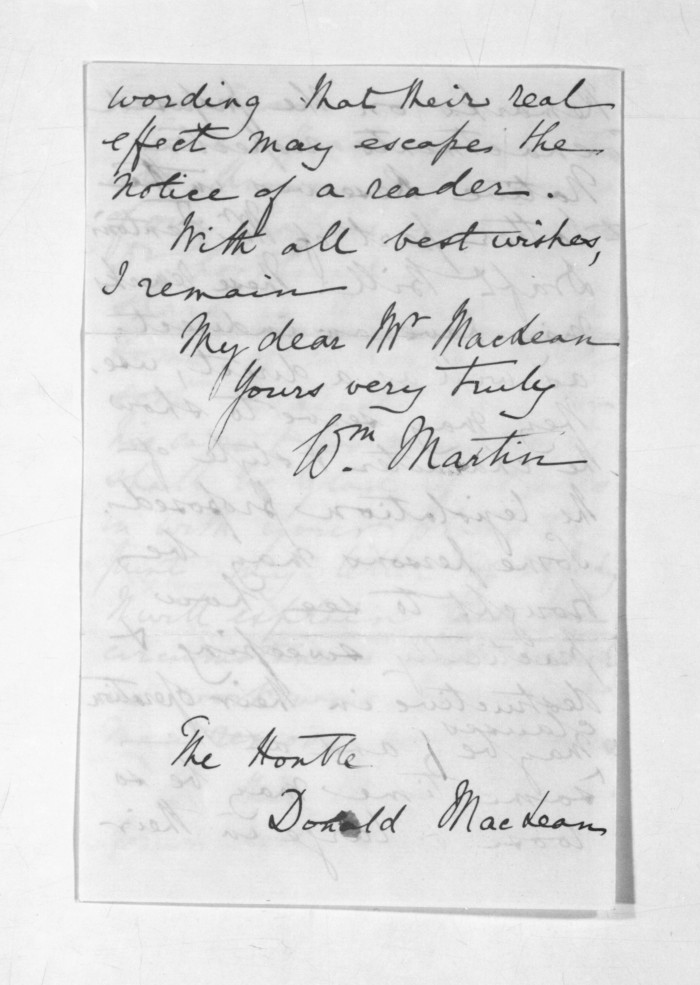 wording that their real
effect may escape the
notice of a reader.
With all best wishes,
I remain
My dear Mr MacLean
Yours very truly
Wm. Martin
The Honble
Donald MacLean